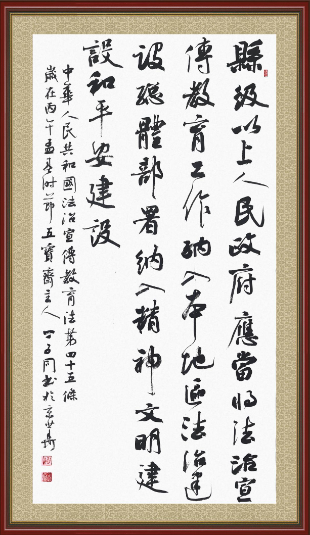 縣級以上人民政府應當將法治宣
傳教育工作納入本地區法治建
設總體部署納入精神文明建
設和平安建設
中華人民共和國法治宣傳教育法第四十五條
歲在丙午孟春時節五寶齋主人丁子同書於京華